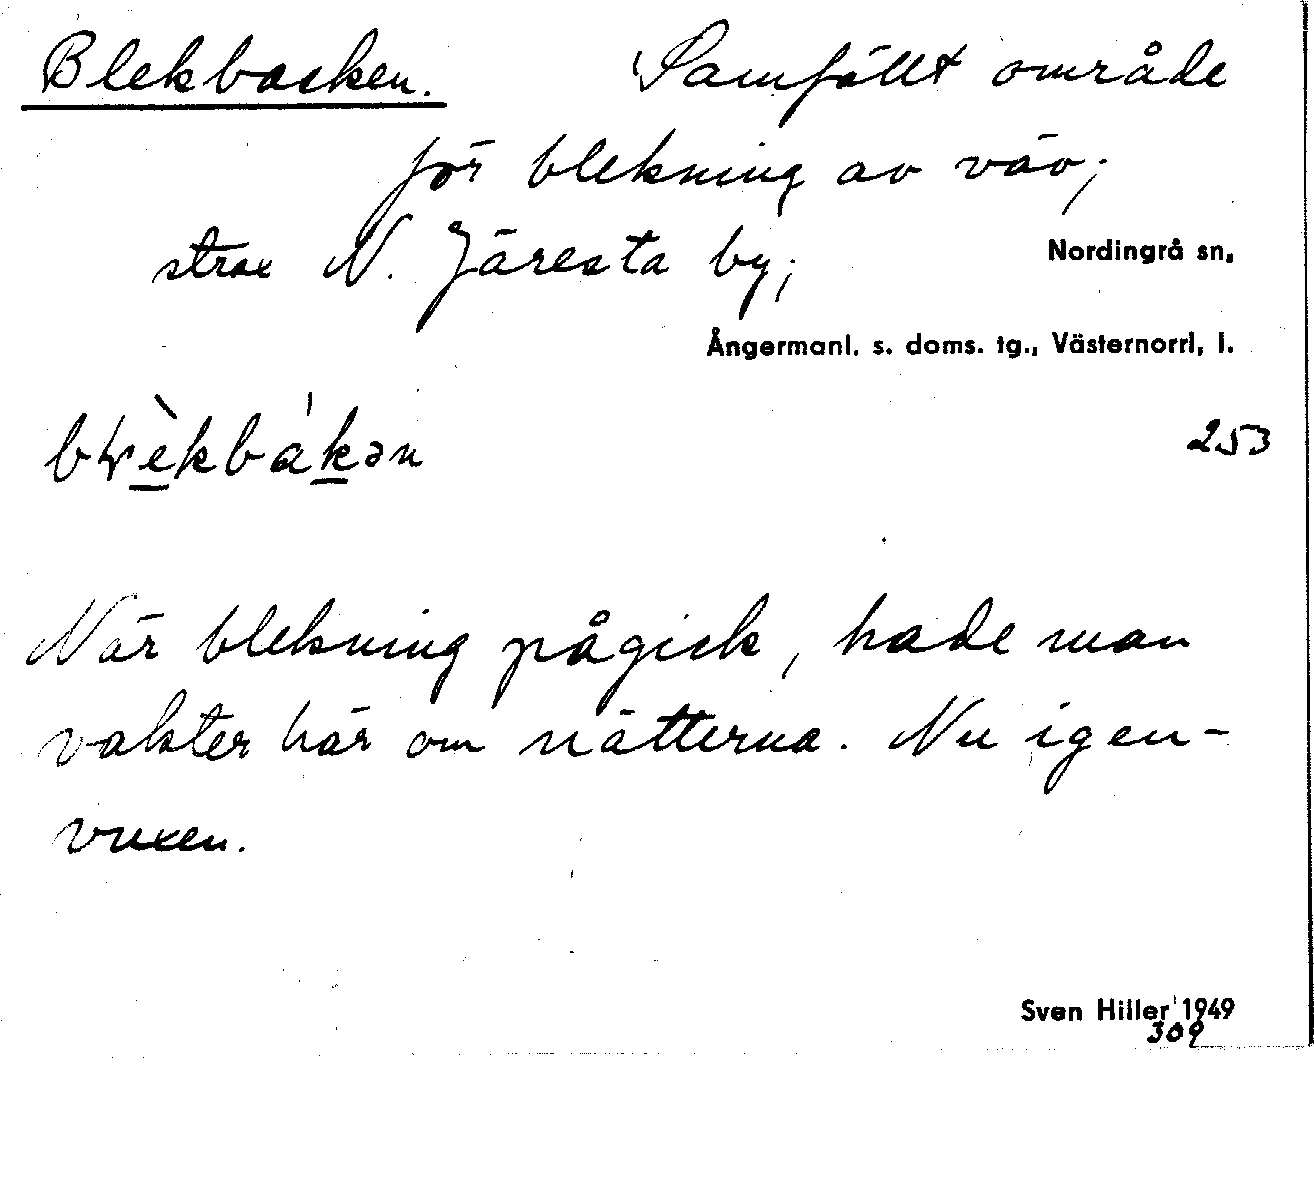 Blekbacken. Samfällt område
för blekning av väv;
strax N. Järesta by; Nordingrå sn.
Ångermanl. s. doms. tg., Västernorrl. l.
253
När blekning pågick, hade man
vakter här om nätterna. Nu igen-
vuxen.
Sven Hiller 1949
309